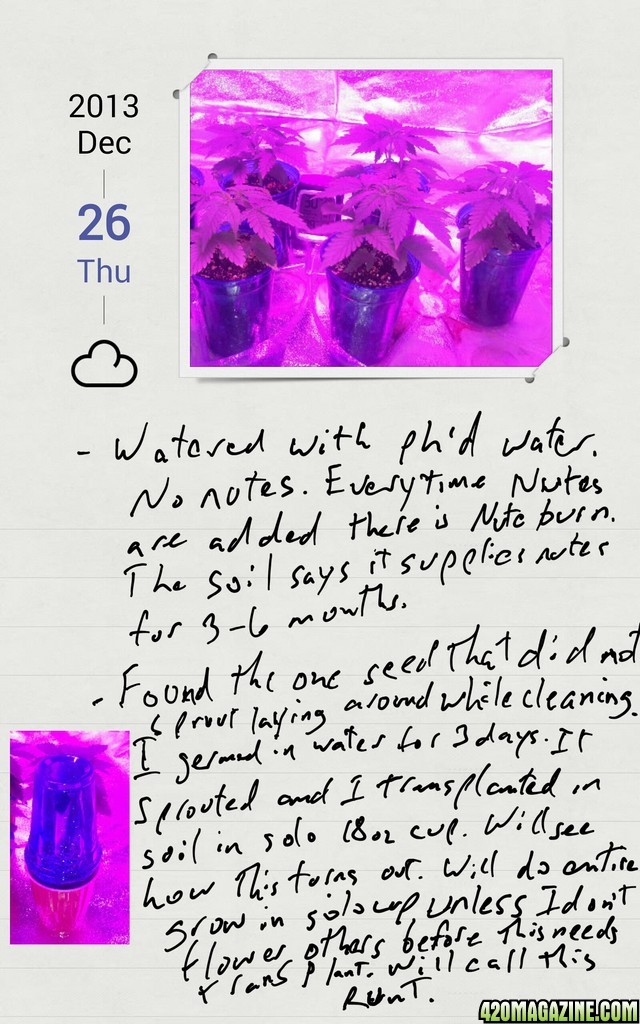 2013
Dec
26
Thu
- Watered with ph'd water.
No nutes. Everytime Nutes
are added there is Nute burn.
The soil says it supplies nutes
for 3-6 months.
- Found the one seed that did not
sprout laying around while cleaning.
I germed in water for 3 days. It
sprouted and I transplanted in
soil in solo 18oz cup. Will see
how this turns out. Will do entire
grow in solo cup unless I don't
flower others before this needs
transplant. Will call this
RUNT.
420MAGAZINE.COM